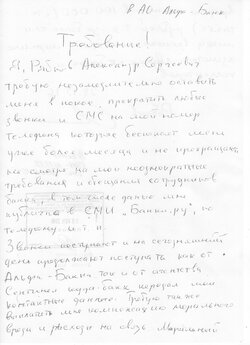 в АО Альфа-Банк
Требование!
Я, Александр Сергеевич
требую незамедлительно оставить
меня в покое, прекратить любые
звонки и СМС на мой номер
телефона которые поступают меня
уже более месяца и не прекращаю
не смотря на мои неоднократные
требования и обещания сотрудников
банка, в том числе данные мне
публично в СМИ "Банки.ру", по
телефону и т. п.
Звонки поступают и на сегодняшний
день продолжают поступать как от
Альфа-Банка так и от агентства
Сентинел куда банк передал мои
контактные данные. Требую также
выплатить мне компенсацию морального
вреда и расходы на связь. Моральный